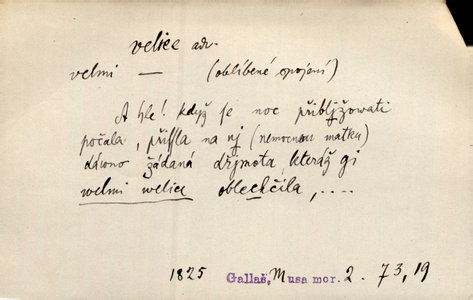 velice adv.
velmi — (oblíbené spojení)
A hle! když se noc přibljžovati
počala, přissla na nj (nemocnou matku)
dáwno žádaná dřjmota, kteráž gi
welmi welice obleclčila, ....
1825 Gallaš, Musa mor. 2. 73, 19